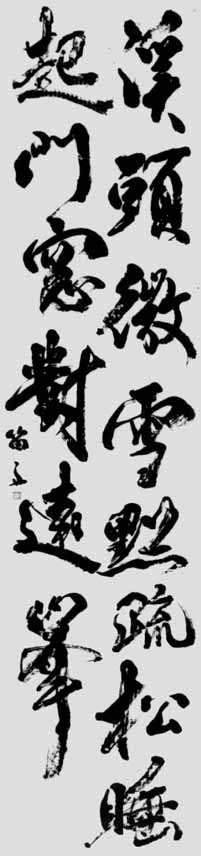 溪頭微雪點疏松睡
起門窓對遠峯